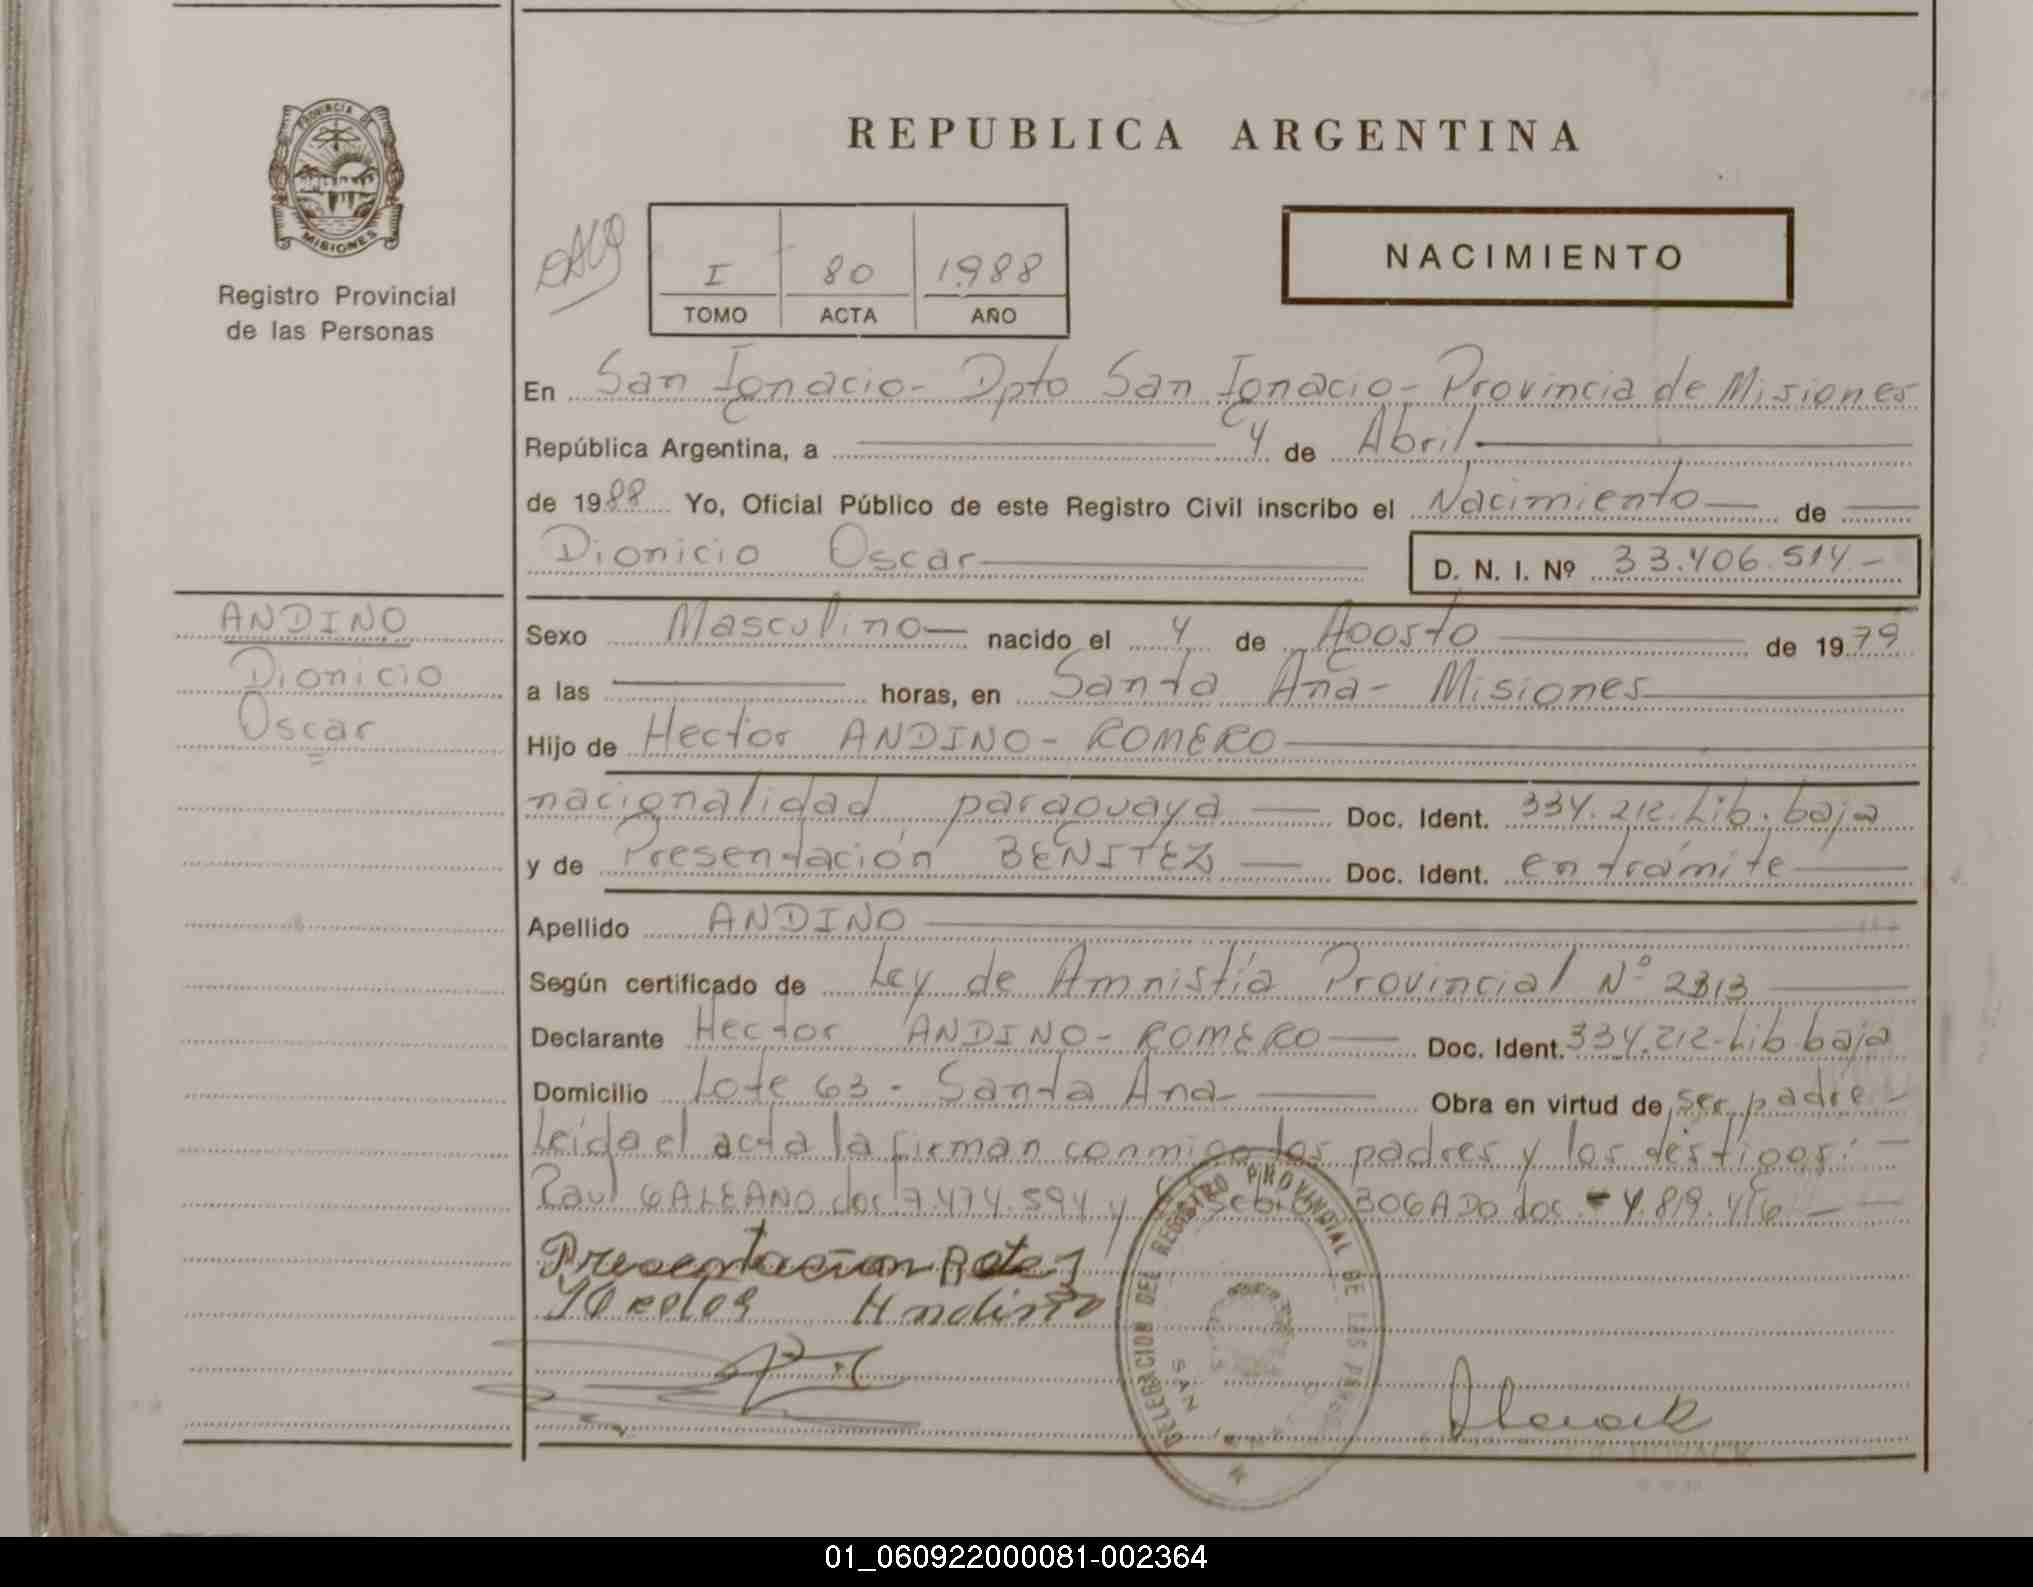 PROVINCIA DE
MISIONES
Registro Provincial
de las Personas
REPUBLICA ARGENTINA
I 80 1988
TOMO ACTA AÑO
NACIMIENTO
En San Ignacio - Dpto San Ignacio - Provincia de Misiones
República Argentina, a 4 de Abril
de 1988 Yo, Oficial Público de este Registro Civil inscribo el Nacimiento de
Dionicio Oscar D. N. I. Nº 33.406.514.-
ANDINO
Dionicio
Oscar
Sexo Masculino nacido el 4 de Agosto de 1979
a las horas, en Santa Ana - Misiones
Hijo de Hector ANDINO - ROMERO
nacionalidad paraguaya Doc. Ident. 334.212.Lib.baja
y de Presentación BENITEZ Doc. Ident. en trámite
Apellido ANDINO
Según certificado de Ley de Amnistía Provincial Nº 2313
Declarante Hector ANDINO - ROMERO Doc. Ident. 334.212-Lib.baja
Domicilio Lote 63 - Santa Ana Obra en virtud de ser padre
Leída el acta la firman conmigo los padres y los testigos: -
Raul GALEANO doc 7.474.594 y BOGADO doc - 4.819.416 - -
Presentacion
Andino
DELEGACION DEL REGISTRO PROVINCIAL DE LAS PERSONAS
SAN
01_060922000081-002364